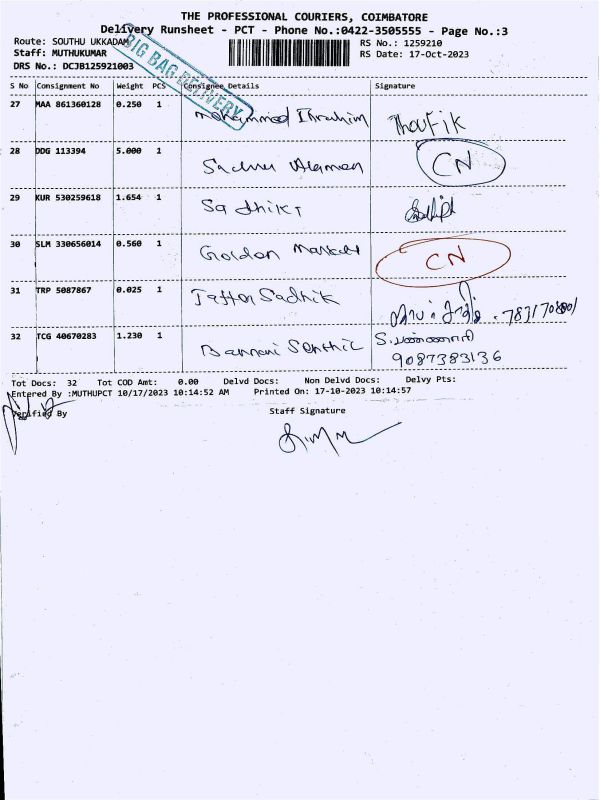 THE PROFESSIONAL COURIERS, COIMBATORE
Delivery Runsheet - PCT - Phone No.:0422-3505555 - Page No.:3
Route: SOUTHU UKKADAM
RS No.: 1259210
Staff: MUTHUKUMAR
RS Date: 17-Oct-2023
DRS No.: DCJB125921003
BIG BAG DELIVERY
S No Consignment No Weight PCS Consignee Details Signature
27 MAA 861360128 0.250 1 Mohammed Ibrahim Thoufik
28 DDG 113394 5.000 1 CN
29 KUR 530259618 1.654 1 Sadhik
30 SLM 330656014 0.560 1 Golden Market CN
31 TRP 5087867 0.025 1 Jaffer Sadhik
32 TCG 40670283 1.230 1 Bannari Senthil
9087383136
Tot Docs: 32 Tot COD Amt: 0.00 Delvd Docs: Non Delvd Docs: Delvy Pts:
Entered By :MUTHUPCT 10/17/2023 10:14:52 AM Printed On: 17-10-2023 10:14:57
Verified By Staff Signature